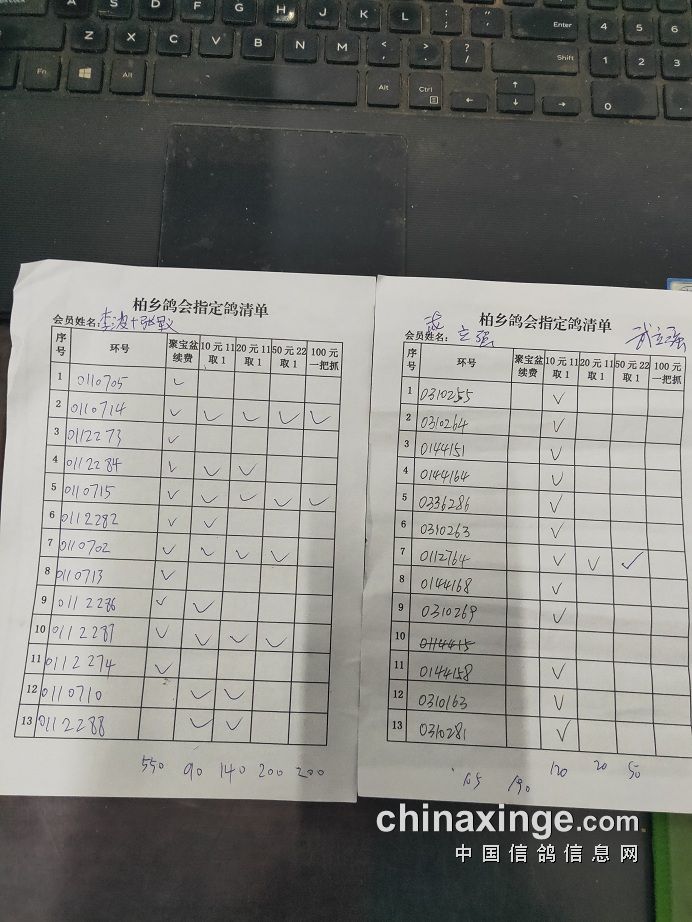 A S D F G H J K L Enter 4 5 6
Z X C V B N M < , > . ? / Shift 1 2 3
Fn Alt Alt Ctrl 0
柏乡鸽会指定鸽清单
会员姓名:李波+张毅
序号 环号 聚宝盆续费 10元11取1 20元11取1 50元22取1 100元一把抓
1 0110705 ✓
2 0110714 ✓ ✓ ✓ ✓ ✓
3 0112273 ✓
4 0112284 ✓ ✓ ✓
5 0110715 ✓ ✓ ✓ ✓ ✓
6 0112282 ✓ ✓
7 0110702 ✓ ✓ ✓ ✓
8 0110713 ✓
9 0112286 ✓ ✓
10 0112287 ✓ ✓ ✓ ✓
11 0112274 ✓
12 0110710 ✓ ✓
13 0112288 ✓ ✓
550 90 140 200 200
柏乡鸽会指定鸽清单
会员姓名: 立强 武立强
序号 环号 聚宝盆续费 10元11取1 20元11取1 50元22取1 100元一把抓
1 0310255 ✓
2 0310264 ✓
3 0144151 ✓
4 0144164 ✓
5 0336286 ✓
6 0310263 ✓
7 0112764 ✓ ✓ ✓
8 0144168 ✓
9 0310269 ✓
10 0114415
11 0144158 ✓
12 0310163 ✓
13 0310281 ✓
120 20 50
190
chinaxinge.com
中国信鸽信息网